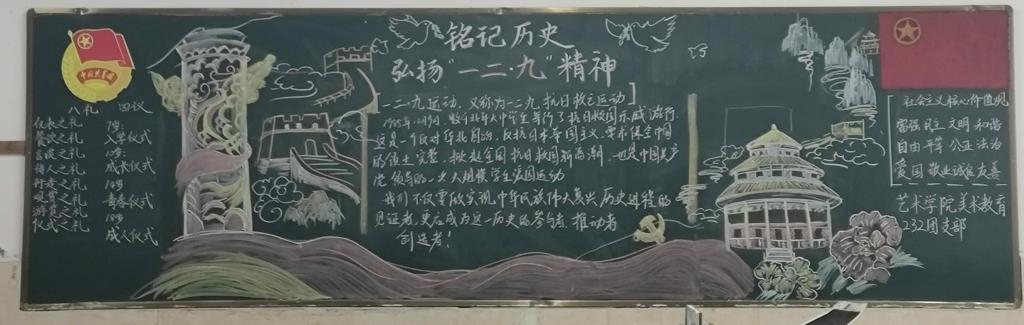 中国共青团
八礼 四仪
仪表之礼 7岁
餐饮之礼 入学仪式
言谈之礼 10岁
待人之礼 成长仪式
行走之礼 14岁
观赏之礼 青春仪式
游览之礼 18岁
仪式之礼 成人仪式
铭记历史
弘扬"一二·九"精神
[一二·九运动,又称为一二九抗日救亡运动]
1935年12月9日,数千北平大中学生举行了抗日救国示威游行
反抗日本帝国主义,要求保全中国
领土完整,掀起全国抗日救国新高潮,也是中国共产
党领导的一次大规模学生爱国运动
我们不仅要做实现中华民族伟大复兴历史进程的
见证者,更应成为这一历史的参与者、推动者
创造者!
社会主义核心价值观
富强 民主 文明 和谐
自由 平等 公正 法治
爱国 敬业 诚信 友善
艺术学院美术教育
232团支部